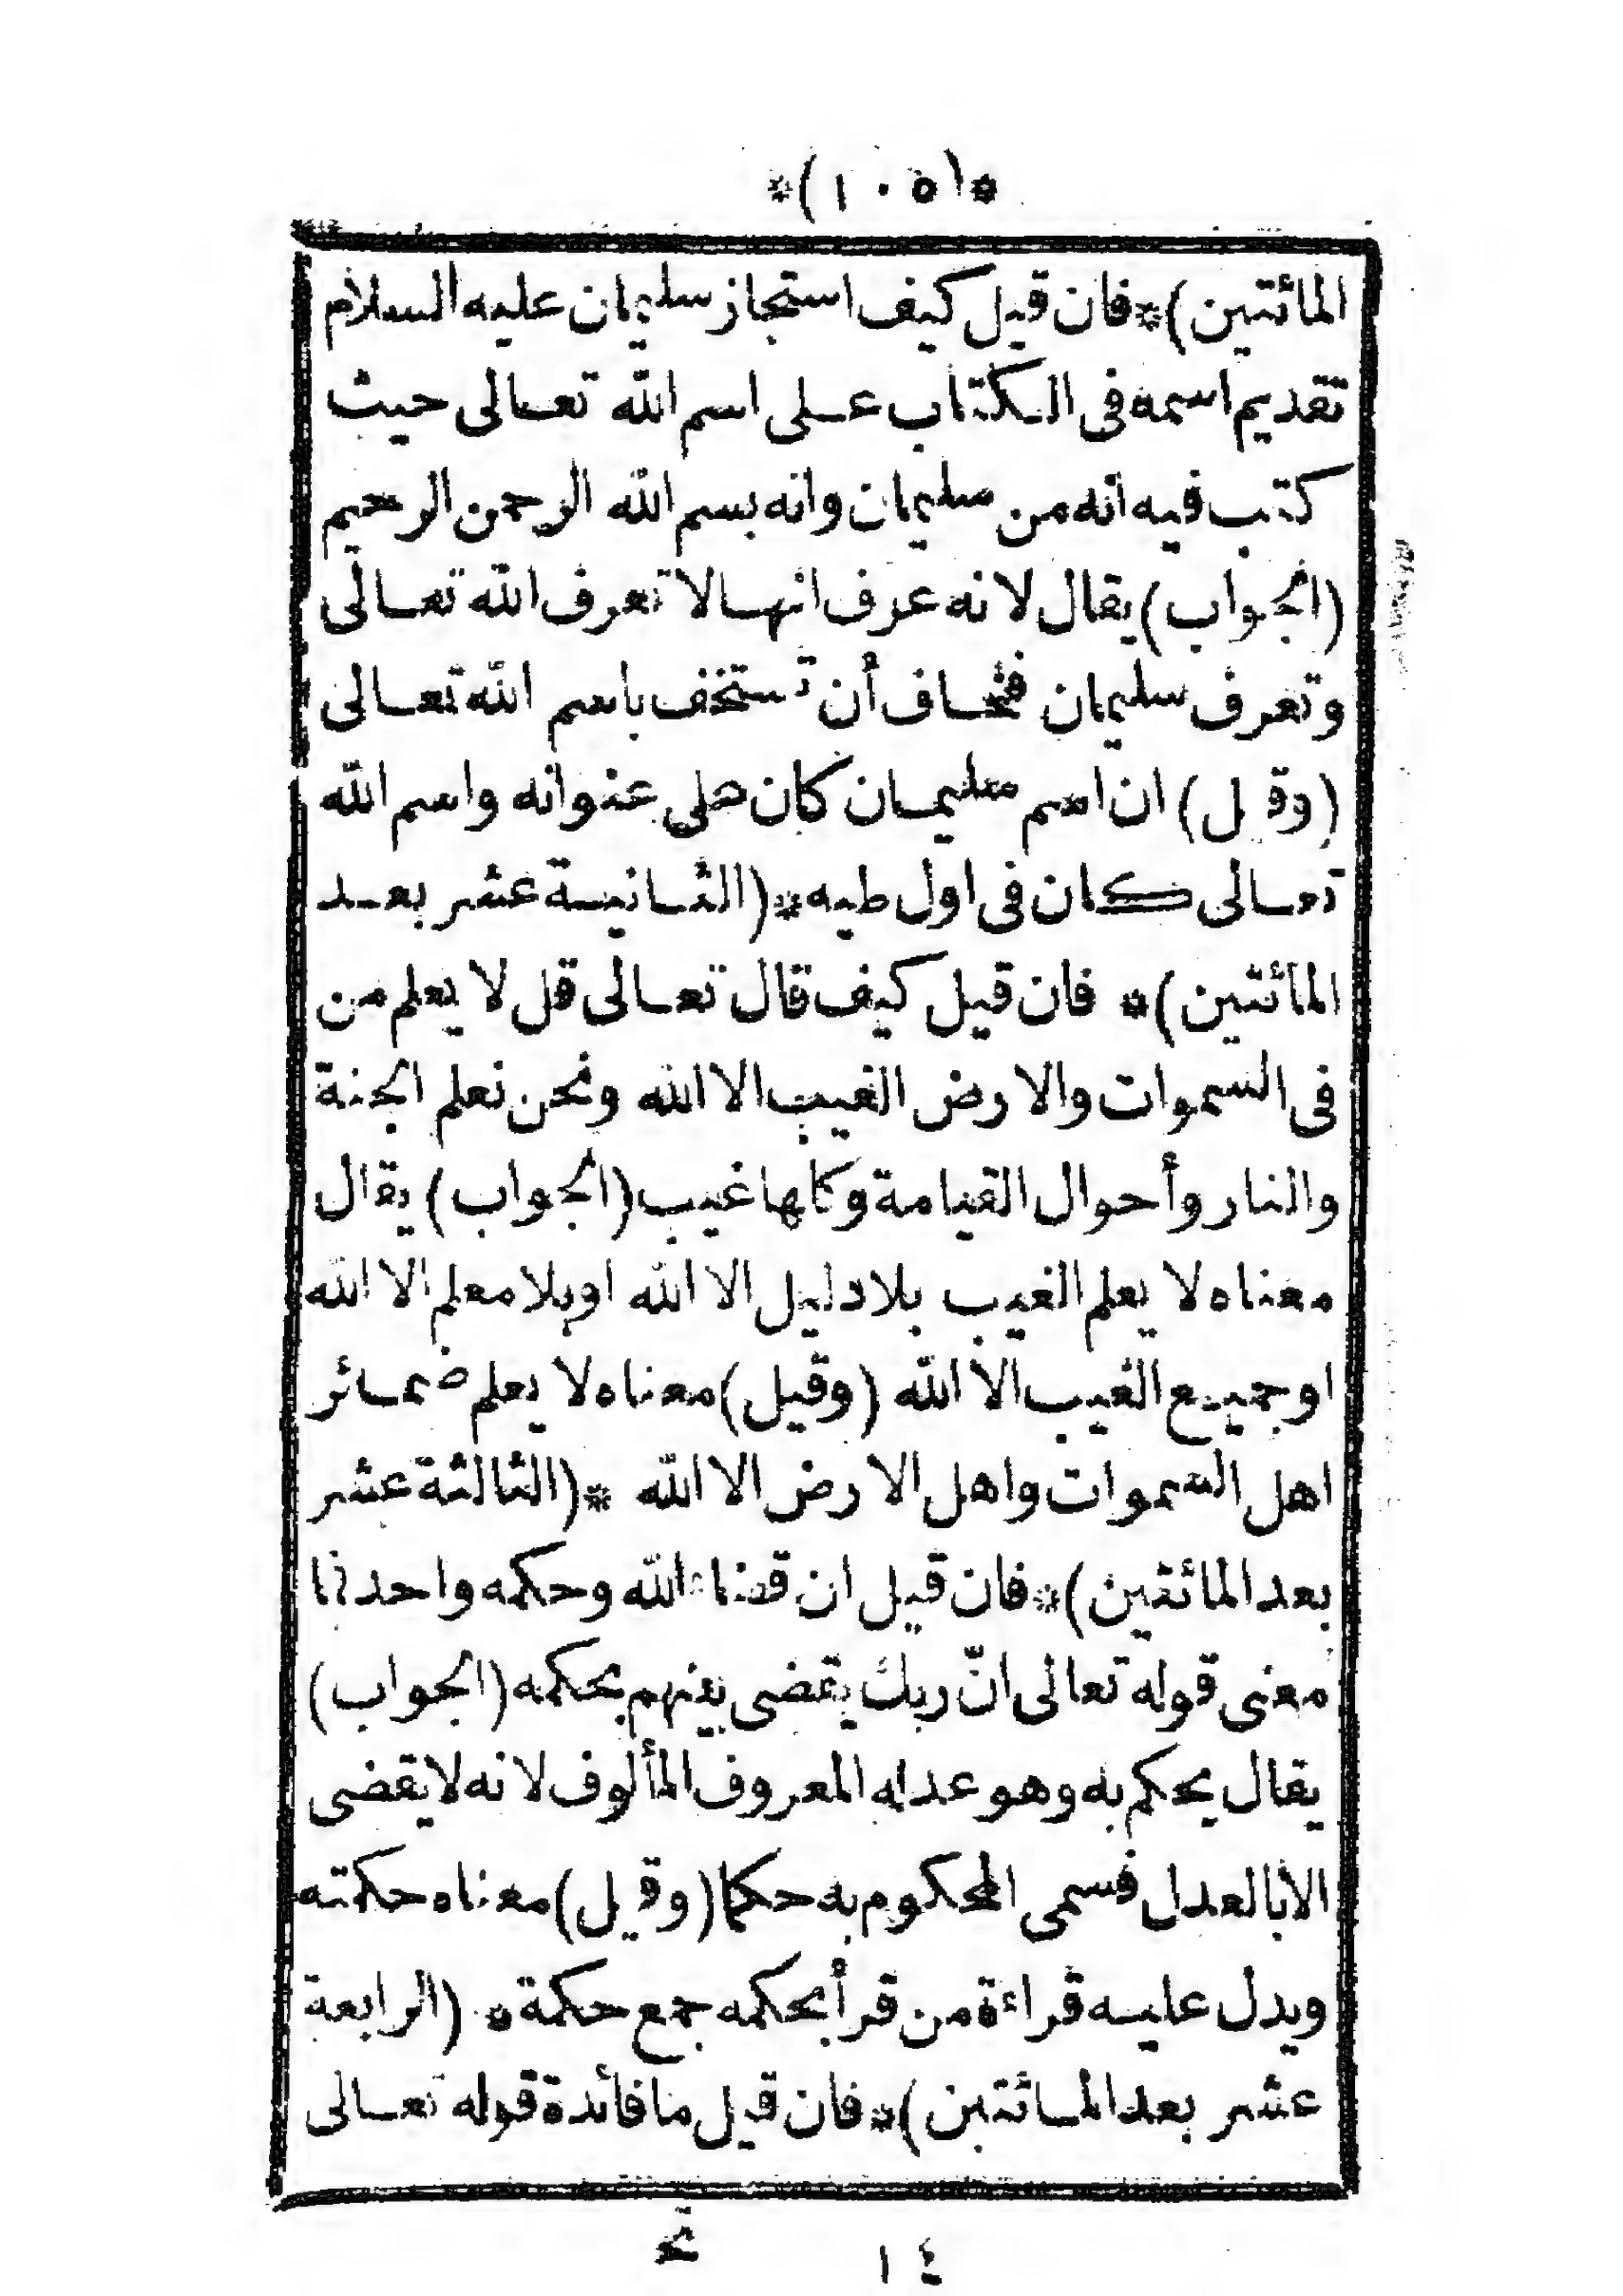 *(١٠٥)*
المائتين)*فان قيل كيف استجاز سليمان عليه السلام
تقديم اسمه فى الكتاب على اسم الله تعالى حيث
كتب فيه انه من سليمان وانه بسم الله الرحمن الرحيم
(الجواب) يقال لانه عرف انها لا تعرف الله تعالى
وتعرف سليمان فخاف أن تستخف باسم الله تعالى
(وقيل) ان اسم سليمان كان على عنوانه واسم الله
تعالى كان فى اول طيه*(الثانية عشر بعد
المائتين)* فان قيل كيف قال تعالى قل لا يعلم من
فى السموات والارض الغيب الا الله ونحن نعلم الجنة
والنار وأحوال القيامة وكلها غيب (الجواب) يقال
معناه لا يعلم الغيب بلا دليل الا الله او بلا معلم الا الله
او جميع الغيب الا الله (وقيل) معناه لا يعلم ضمائر
اهل السموات واهل الارض الا الله *(الثالثة عشر
بعد المائتين)*فان قيل ان قضاء الله وحكمه واحد فما
معنى قوله تعالى انّ ربك يقضى بينهم بحكمه (الجواب)
يقال يحكم به وهو عدله المعروف المألوف لانه لا يقضى
الا بالعدل فسمى المحكوم به حكما (وقيل) معناه حكمته
ويدل عليه قراءة من قرأ بحكمه جمع حكمة* (الرابعة
عشر بعد المائتين)*فان قيل ما فائدة قوله تعالى
١٤ تح